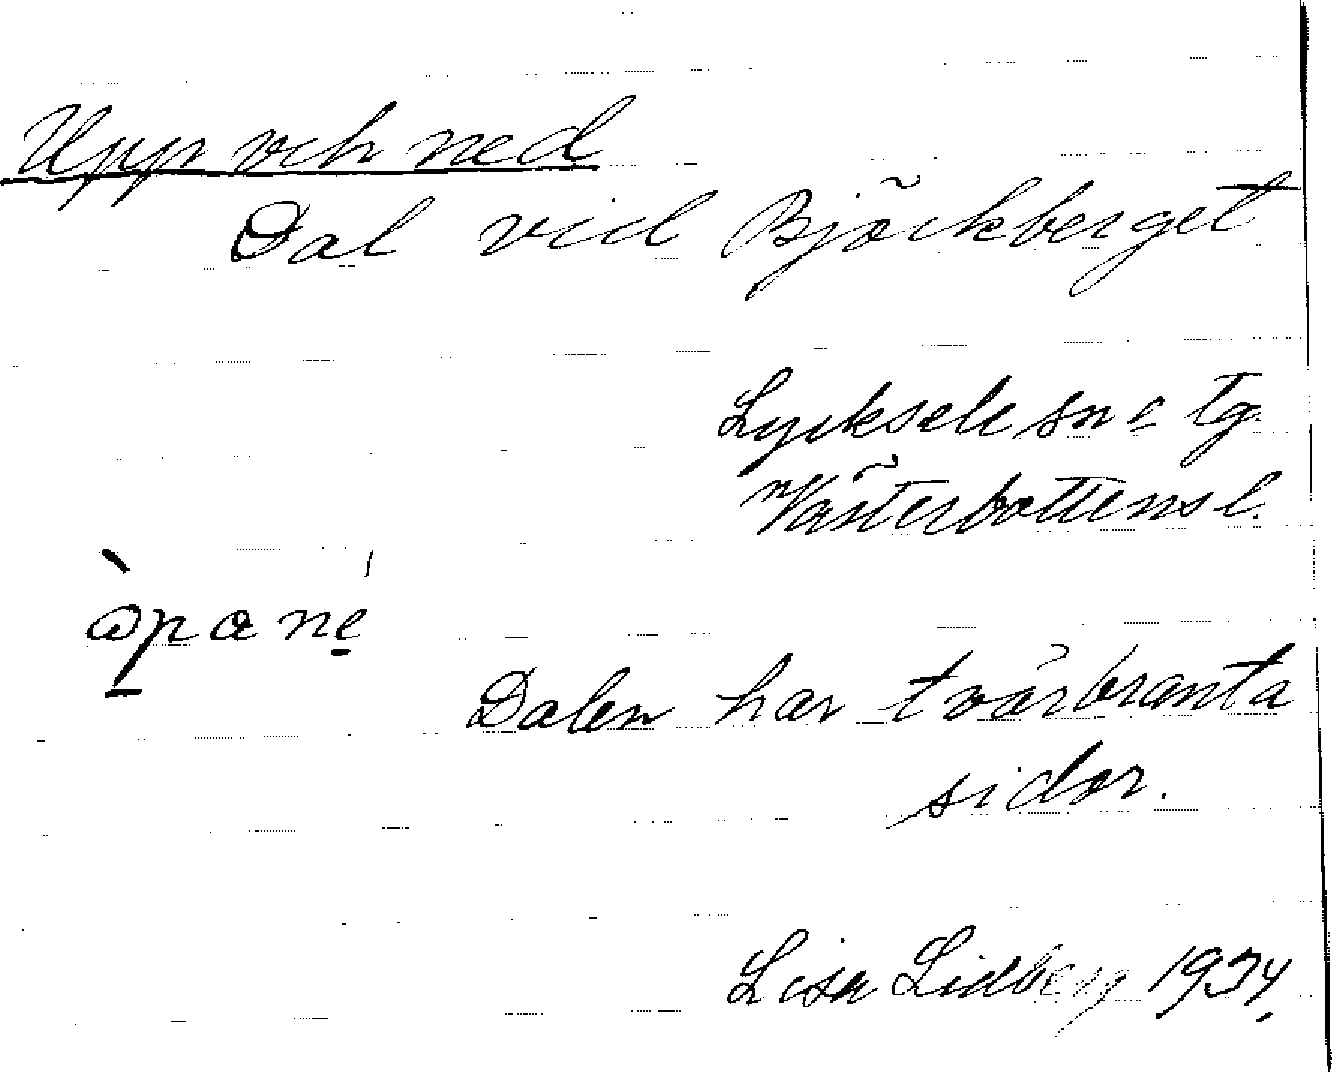 Upp och ned
Dal vid Björkberget
Lycksele sn o tg
Västerbottens l.
òpa né
Dalen har tvärbranta
sidor.
Lisa Lidberg 1934.